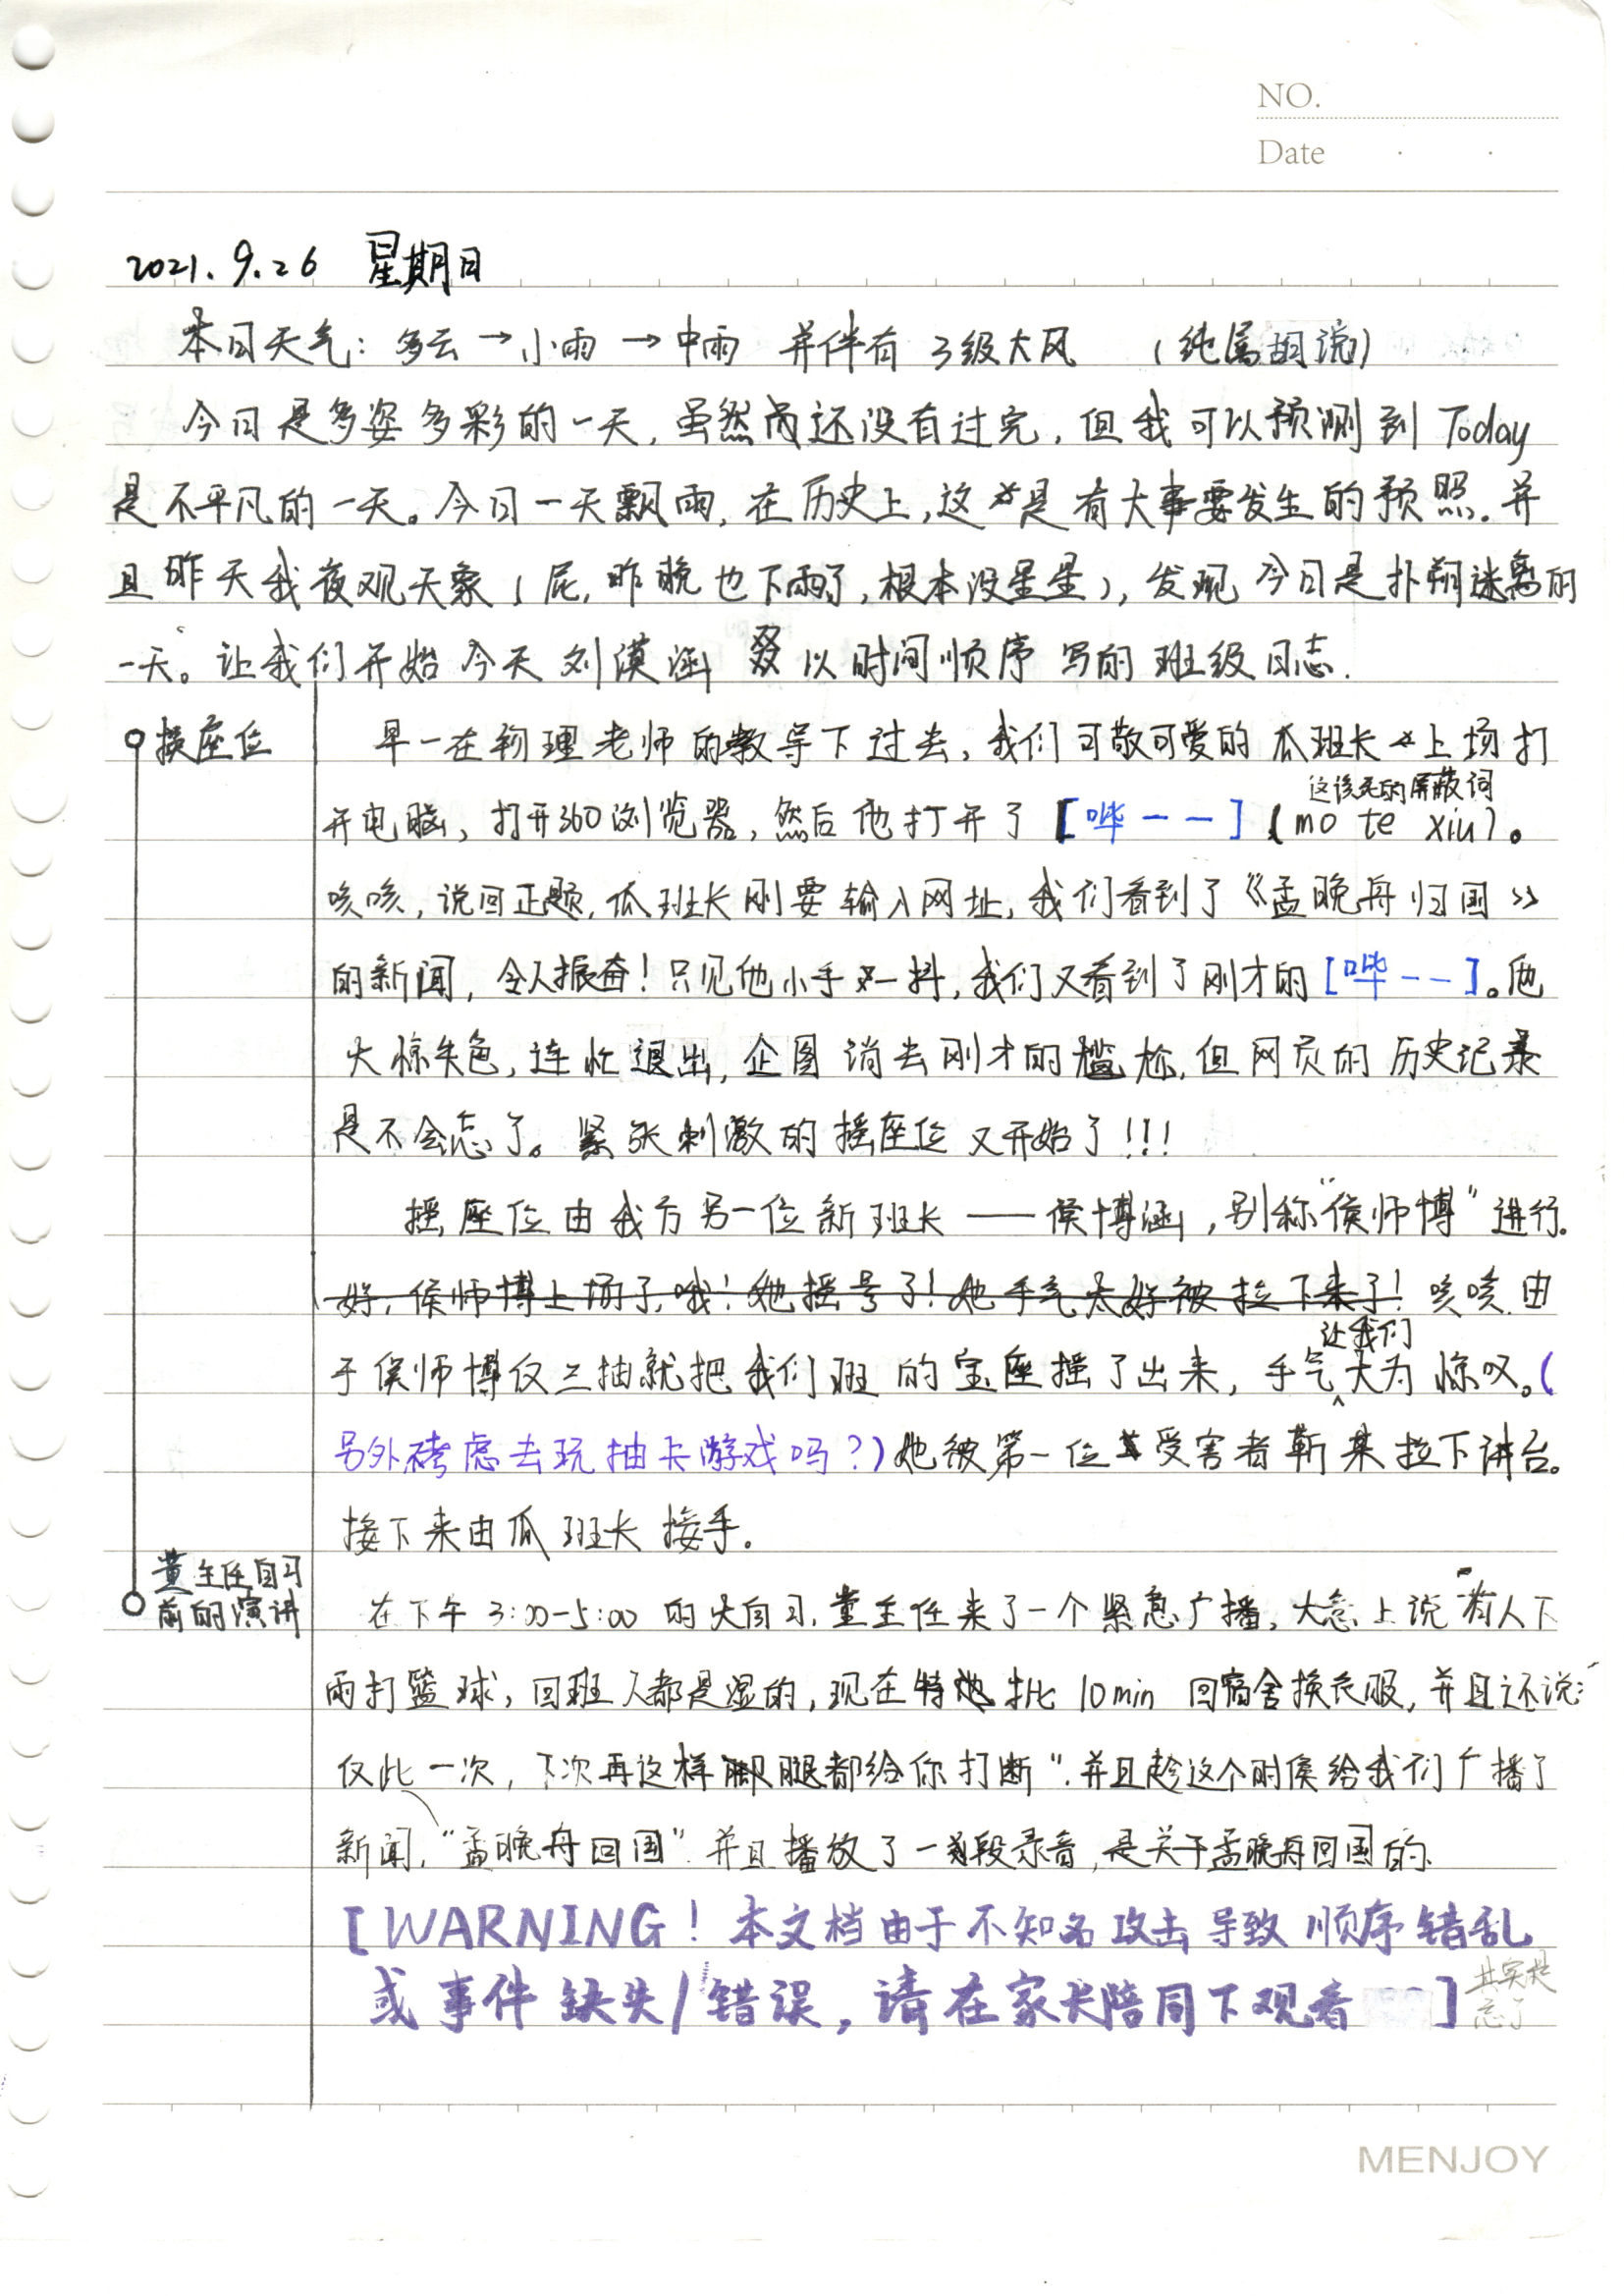 NO.
Date
2021.9.26 星期日
本日天气：多云→小雨→中雨 并伴有3级大风 （纯属胡说）
今日是多姿多彩的一天，虽然尚还没有过完，但我可以预测到Today
是不平凡的一天。今日一天飘雨，在历史上，这是有大事要发生的预照。并
且昨天我夜观天象（屁，昨晚也下雨了，根本没星星），发现今日是扑朔迷离的
一天。让我们开始今天刘漠涵叕以时间顺序写的班级日志.
换座位
早一在物理老师的教导下过去，我们可敬可爱的瓜班长上场打
这该死的屏蔽词
开电脑，打开360浏览器，然后他打开了[哔——]（mo te xiu）。
咳咳，说回正题，瓜班长刚要输入网址，我们看到了《孟晚舟归国》
的新闻，令人振奋！只见他小手一抖，我们又看到了刚才的[哔——]。他
大惊失色，连忙退出，企图消去刚才的尴尬，但网页的历史记录
是不会忘了。紧张刺激的摇座位又开始了!!!
摇座位由我方另一位新班长——侯博涵，别称“侯师博”进行.
好，侯师博上场了，哦！她摇号了！她手气太好被拉下来了！咳咳.由
让我们
于侯师博仅三抽就把我们班的宝座摇了出来，手气大为惊叹。（
另外考虑去玩抽卡游戏吗？）她被第一位受害者靳某拉下讲台。
接下来由瓜班长接手。
黄主任自习
前的演讲
在下午3:00-5:00的大自习，黄主任来了一个紧急广播，大意上说“有人下
雨打篮球，回班人都是湿的，现在特地批10min回宿舍换衣服，并且还说：
仅此一次，下次再这样腿都给你打断”.并且趁这个时候给我们广播了
新闻，“孟晚舟回国”并且播放了一段录音，是关于孟晚舟回国的.
[WARNING！本文档由于不知名攻击导致顺序错乱
或事件缺失/错误，请在家长陪同下观看]
其实是
忘了
MENJOY